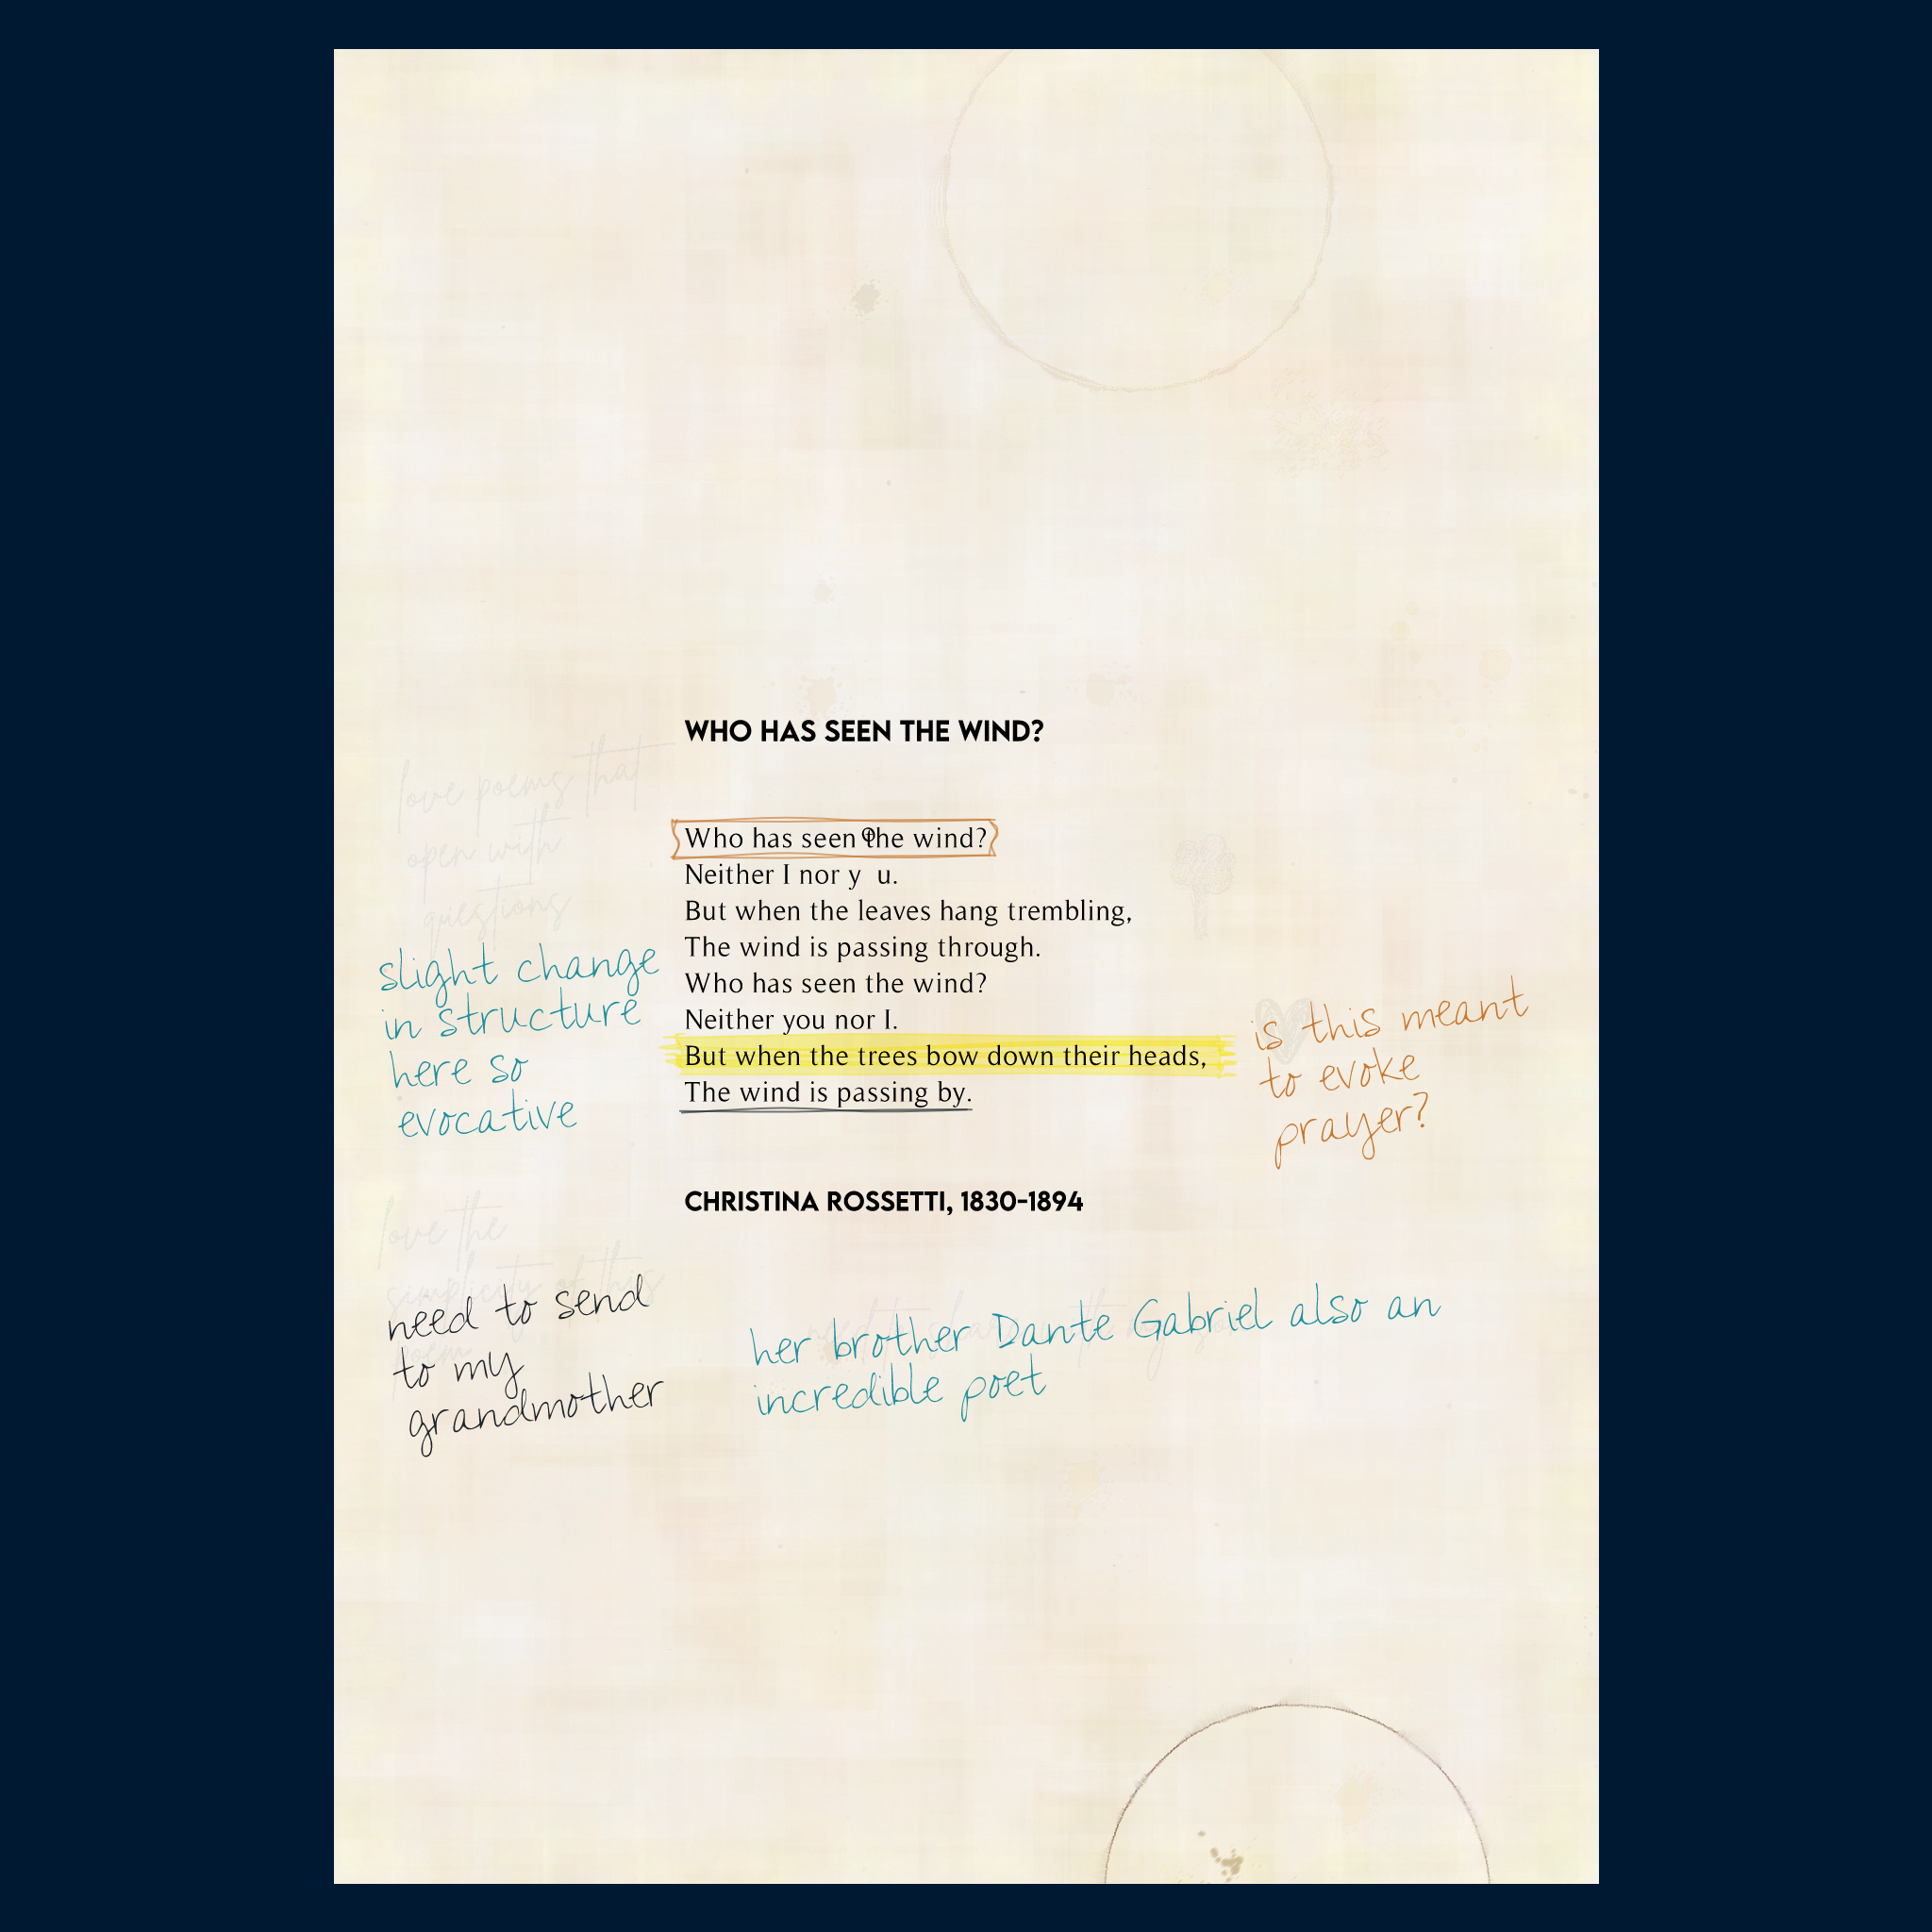 WHO HAS SEEN THE WIND?
Who has seen the wind?
Neither I nor y u.
But when the leaves hang trembling,
The wind is passing through.
Who has seen the wind?
Neither you nor I.
But when the trees bow down their heads,
The wind is passing by.
CHRISTINA ROSSETTI, 1830-1894
love poems that
open with
questions
slight change
in structure
here so
evocative
is this meant
to evoke
prayer?
love the
simplicity of this
poem
need to send
to my
grandmother
her brother Dante Gabriel also an
incredible poet